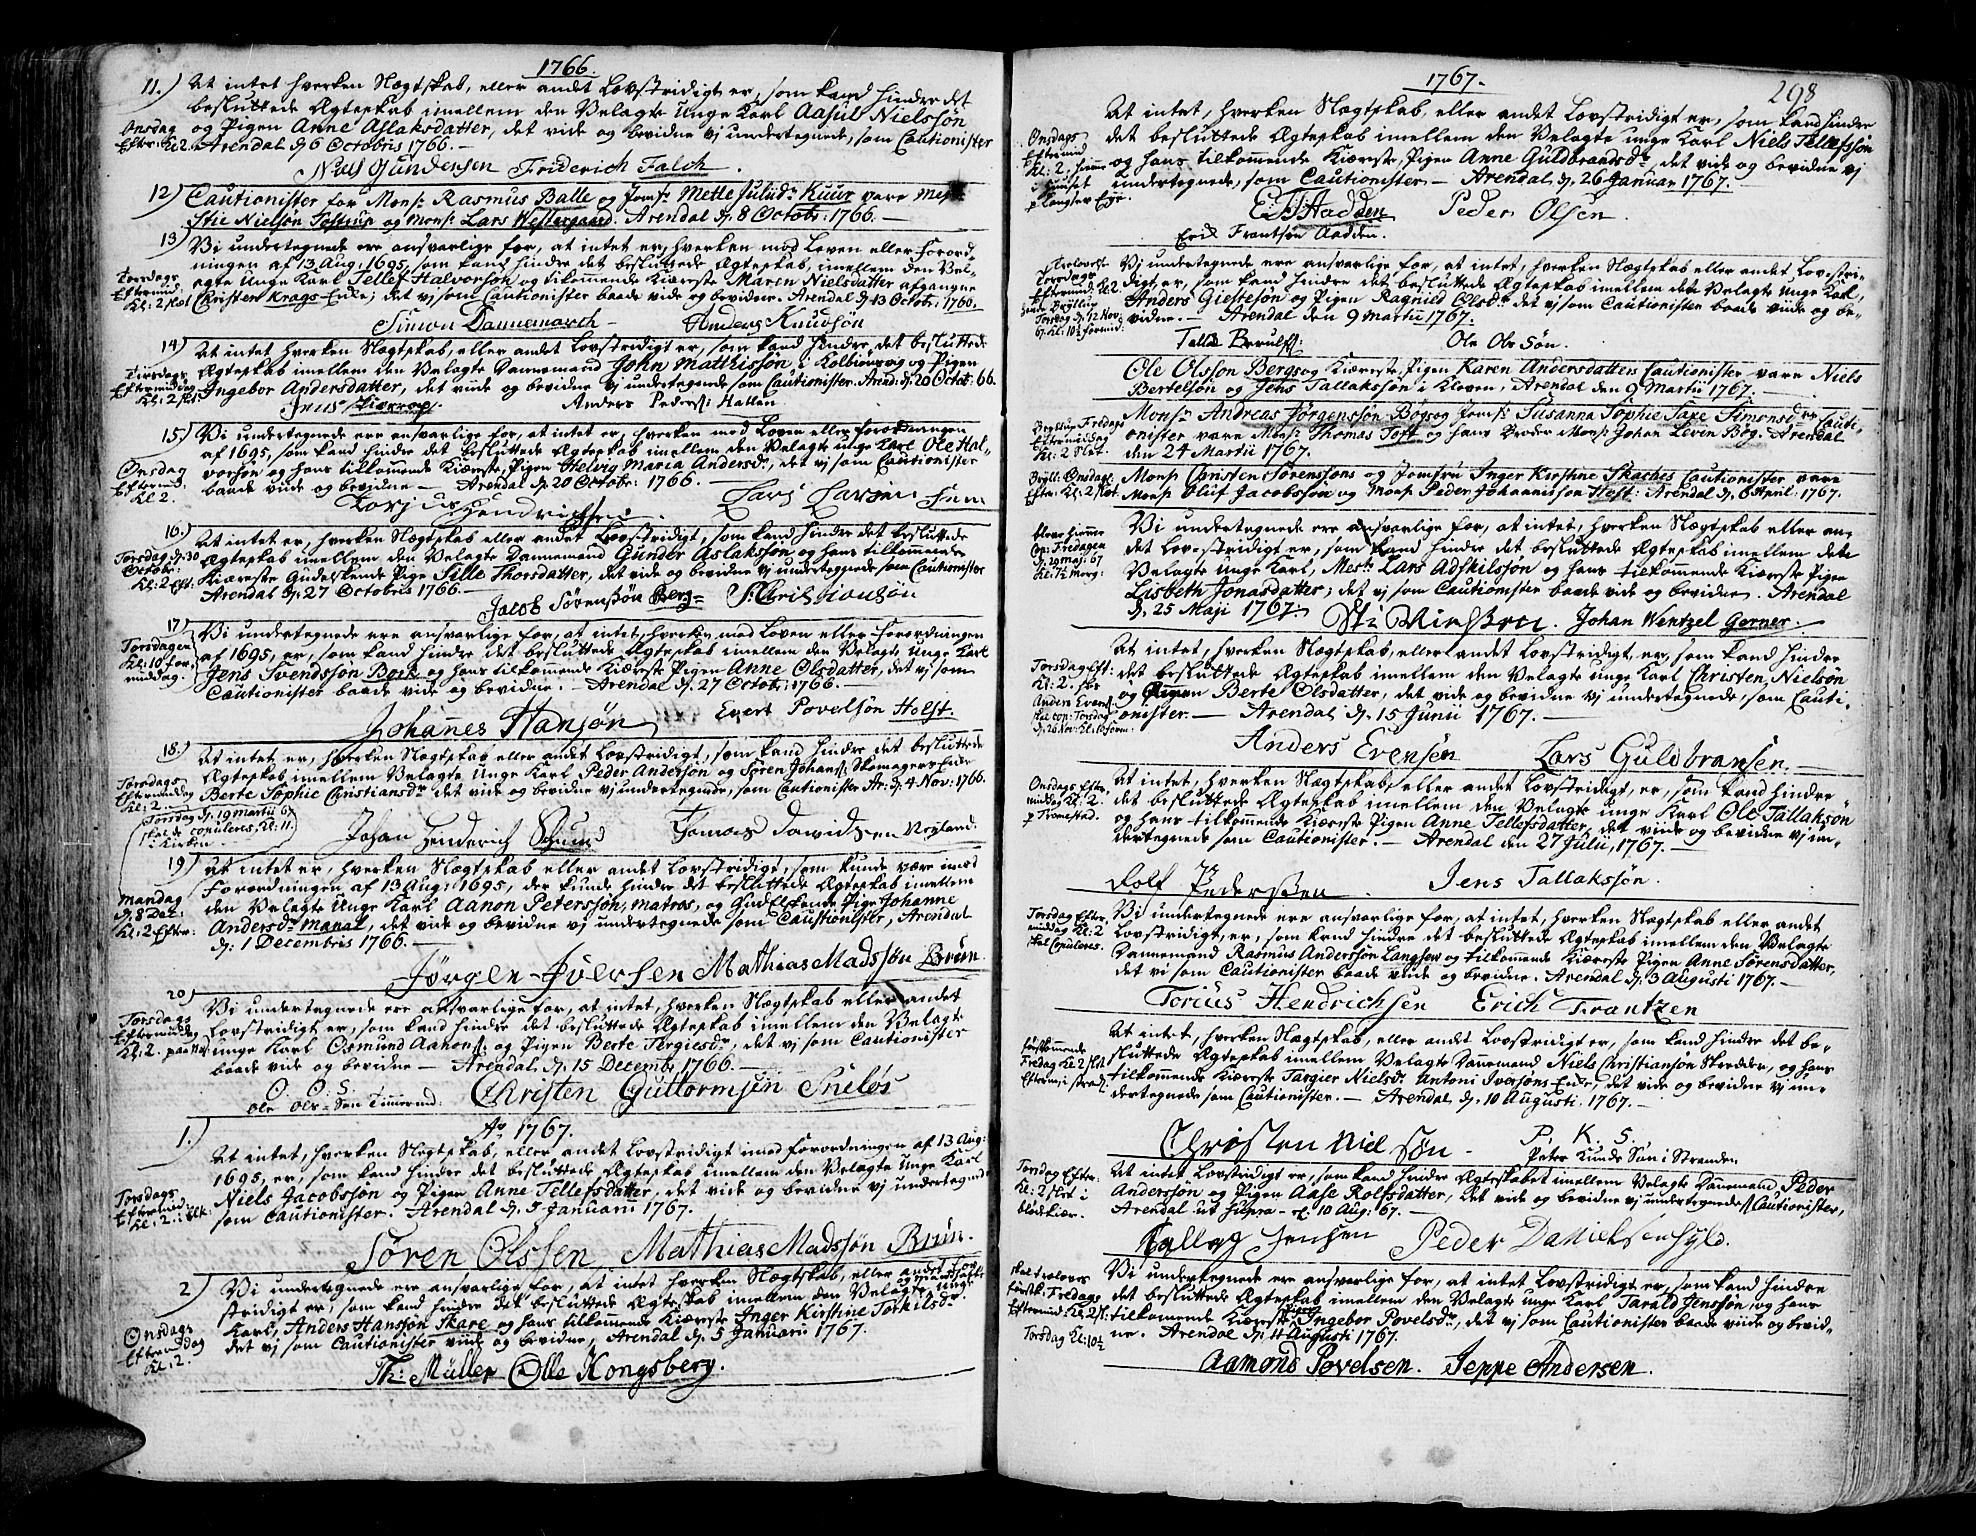 1766.
11.) At intet hverken Slegtskab, eller andet Lovstridigt er, som kand hindre det
besluttede Ægteskab imellem den Velagte Unge Karl Aasul Nielssøn
og Pigen Anne Aslaksdatter, det vide og bevidne vj undertegnede, som Cautionister
Onsdag
Efter: Kl. 2.
Arendal dj 6 Octobris 1766.
Niels Gundersen Friderich Falch.
12) Cautionister for Mons: Rasmus Balle og Jomf: Mette Juliid: Kuur vare
Stie Nielsøn Tostrup og Mons: Lars Westergaard. Arendal dj 8 Octobr: 1766.
13) Vi undertegnede ere ansvarlige for, at intet er, hverken mod Loven eller Forord-
ningen af 13 Aug: 1695, som kand hindre det besluttede Ægteskab, imellem den Vel-
agte Unge Karl Tellef Halvorsøn og tilkommende Kiærste Maren Nielsdatter afgangne
Christen Krags Enke; det vj som Cautionister baade vide og bevidne. Arendal dj 13 Octobr: 1766.
Torsdags
Eftermid:
Kl: 2 slet
Simon Dannemarch Anders Knudsøn
14) At intet hverken Slegtskab, eller andet Lovstridigt er, som kand hindre det besluttede
Ægteskab imellem den Velagte Dannemand John Matthissøn i Kolbiørnsvig og Pigen
Ingebor Andersdatter, det viide og bevidne vj undertegnede som Cautionister. Arend: dj 20 Octob: 66.
Tiirsdags
Eftermiddag
Kl: 2 slet.
Anders Peders: Hallen
15.) Vi undertegnede ere ansvarlige for, at intet er, hverken mod Loven eller forordningen
af 1695, som kand hindre det besluttede Ægteskab imellem den Velagte unge Karl Ole Hal-
vorsøn og hans tilkommende Kiærste, Pigen Helvig Maria Andersd:, det vj som Cautionister
baade viide og bevidne. Arendal dj 20 Octobr: 1766.
Onsdag
Efterm:
Kl: 2.
Torjus Hendrichsen Lars Larsen
16.) At intet er, hverken Slegtskab eller andet Lovstridigt, som kand hindre det besluttede
Ægteskab imellem den Velagte Dannemand Gunder Aslaksøn og hans tilkommende
Kiærste Gudelskende Pige Sille Thorsdatter, det vide og bevidne vj undertegnede som Cautionister
Arendal dj 27 Octobris 1766.
Torsdag dj 30
Octobr:
Kl: 2 Eft.
Jacob Sørenssøn Berg
17) Vi undertegnede ere ansvarlige for, at intet, hverken mod Loven eller Forordningen
af 1695, er, som kand hindre det besluttede Ægteskab imellem den Velagte Unge Karl
Jens Svendssøn Bock og hans tilkommende Kiærste Pigen Anne Olsdatter, det vj som
Cautionister baade vide og bevidne. Arendal dj 27 Octobr: 1766.
Torsdagen
Kl: 10 for
middag.
Johannes Hansøn Evert Povelsøn Holst.
18.) At intet er, hverken Slegtskab eller andet Lovstridigt, som kand hindre det besluttede
Ægteskab imellem Velagte Unge Karl Peder Andersøn og Søren Johans: Skomagers Enke
Berte Sophie Christiansdr det vide og bevidne vj undertegnede, som Cautionister Ar: dj 4 Nov: 1766.
Torsdags
Eftermiddag
Kl: 2.
Torsdag dj 19 Martii 67
skal de copuleres, Kl: 11.
i Kirken.
Johan Henderich Thomas Dawidsen Nyeland.
19.) At intet er, hverken Slegtskab, eller andet Lovstridigt, som kunde være imod
Forordningen af 13 Aug: 1695, der kunde hindre det besluttede Ægteskab imellem
den Velagte Unge Karl Aanon Peterssøn, matros, og Gudelskende Pige Johanne
Andersdr Manal, det vide og bevidne vj undertegnede som Cautionister, Arendal
dj: 1 Decembris 1766.
Mandag
dj 8 Dec:
Kl: 2 Efter:
Jørgen Jversen Mathias Madssøn Brun.
20) Vi undertegnede ere answarlige for, at intet, hverken Slegtskab eller andet
Lovstridigt er, som kand hindre det besluttede Ægteskab imellem den Velagte
unge Karl Osmund Aanons: og Pigen Berte Tergiesdr, det vj som Cautionister
baade viide og bevidne. Arendal, dj 15 Decembr: 1766.
Torsdags
Eftermiddag
Kl: 2.
O. O. S.
Ole Ols-Søn Timmermd. Christen Guttormsen Sneløs
Ao 1767.
1.) At intet, hverken Slegtskab, eller andet Lovstridigt imod Forordningen af 13 Aug:
1695, er, som kand hindre det besluttede Ægteskab imellem den Velagte Unge Karl
Niels Jacobssøn og Pigen Anne Tellefsdatter, det vide og bevidne vj undertegnede
som Cautionister. Arendal dj 5 Januarii 1767.
Torsdags
Efterm:
Kl: 2:
Søren Olssen, Mathias Madssøn Brun.
2) Vi undertegnede ere ansvarlige for, at intet hverken Slegtskab, eller andet Lov-
stridigt er, som kand hindre det besluttede Ægteskab imellem den Velagte unge
Karl, Anders Hanssøn Skare og hans tilkommende Kiærste Inger Kirstine Torkilsdr.
det vj som Cautionister viide og bevidne, Arendal dj 5 Januarii 1767.
Onsdags
Eftermiddag
Kl: 2.
Th: Müller Olle Kongsberg.
1767.
298
At intet, hverken Slegtskab, eller andet Lovstridigt er, som kand hindre
det besluttede Ægteskab imellem den Velagte unge Karl Niels Tellefssøn
og hans tilkommende Kiærste, Pigen Anne Guldbrandsdr, det vide og bevidne vj
undertegnede, som Cautionister. Arendal dj 26 Januar. 1767.
Onsdags
Eftermid
Kl: 2, hieme
i Huuset
Peder Olsen.
Erik Frantsøn Aadden.
Vi undertegnede ere ansvarlige for, at intet, hverken Slegtskab eller andet Lovstri-
digt, er, som kand hindre det besluttede Ægteskab imellem den Velagte Unge Karl,
Anders Giestesøn og Pigen Ragnild Olsdr det vj som Cautionister baade viide og be-
vidne. Arendal den 9 Martii 1767.
Trolovede
Torsdags
Eftermid: Kl. 2
Torsdag dj 12 Nov:
67. Kl: 10½ formid:
Ole Olssøn.
Ole Olsson Bergs og Kiærste, Pigen Karen Andersdatters Cautionister vare Niels
Bertelsøn og Jens Tallaksøn i Kleven, Arendal den 9 Martii 1767.
Monsr Andreas Jørgenssøn Bøgs og Jomf: Susanna Sophie Saxe Simonsdr Cauti-
onister vare Mons: Thomas Toft og hans Broder Mons: Johan Leven Bøg. Arendal
den 24 Martii 1767.
Bryllup Fredags
Eftermiddag
Kl: 2 Slet.
Mons: Christen Sørenssons og Jomfru Inger Kirstine Skaches Cautionister vare
Mons: Oluf Jacobssøn og Mons: Peder Johannissøn Holst: Arendal dj 6 April: 1767.
Bryll: Onsdags
Eftr: Kl: 2 slet
Vi undertegnede ere ansvarlige for, at intet, hverken Slegtskab eller an-
det Lovstridigt er, som kand hindre det besluttede Ægteskab imellem dete
Velagte unge Karl, Mestr: Lars Adskilssøn og hans tilkommende Kiærste Pigen
Lisbeth Jonasdatter; det vj som Cautionister baade vide og bevidne. Arendal
dj. 25 Maji 1767.
Cop: Fredagen
dj 29 Maj: 67
Kl: 7½ Morg:
Johan Wentzel Gerner.
At intet, hverken Slegtskab, eller andet Lovstridigt, er, som kand hindre
det besluttede Ægteskab imellem den Velagte Unge Karl Christen Nielsøn
og Pigen Berte Olsdatter, det vide og bevidne vj undertegnede, som Cauti-
onister. Arendal dj 15 Junii 1767.
Torsdag Eft:
Kl: 2. hos
Anders Evens:
skal cop: Torsdag
dj 26 Nov: Kl: 10 form:
Anders Evensen Lars Guldbransen.
At intet, hverken Slegtskab, eller andet Lovstridigt er, som kand hindre
det besluttede Ægteskab imellem den Velagte unge Karl Ole Tallaksøn
og hans tilkommende Kiærste Pigen Anne Tellefsdatter det viide og bevidne vj un-
dertegnede som Cautionister. Arendal den 27 Julii, 1767.
Onsdags Efter-
middag Kl: 2.
p Tromøstad.
Rolf Pederssen. Jens Tallakssøn.
Vi undertegnede ere ansvarlige for, at intet, hverken Slegtskab eller andet
Lovstridigt, er, som kand hindre det besluttede Ægteskab imellem den Velagte
Dannemand Rasmus Anderssøn Langsew og tilkommende Kiærste Pigen Anne Sørensdatter,
det vi som Cautionister baade vide og bevidne. Arendal dj 3 Augusti 1767.
Torsdag Efter-
middag Kl: 2
skal Copuleres.
Torius Hendrichsen Erich Frantzen
At intet, hverken Slegtskab, eller andet Lovstridigt er, som kand hindre det be-
sluttede Ægteskab imellem Velagte Dannemand Niels Christiansøn Skredder, og hans
tilkommende Kiærste Targier Nielsdr Antoni Iversøns Enke, det vide og bevidne vj un-
dertegnede som Cautionister. Arendal dj 10 Augusti 1767.
førstkommende
Fredag Kl 2 slet
Christen Nielsøn P. K. S.
Peter Knuds Søn i Stranden
At intet Lovstridigt er, som kand hindre Ægteskabet imellem Velagte Dannemand Peder
Anderssøn og Pigen Aase Rolfsdatter, det vide og bevidne vj undertegnede Cautionister,
Arendal ut Supra d. 10 Aug: 67.
Torsdag Efter:
Kl: 2 slet i
Tallag Jensen Peder Danielsen Hyld.
Vi undertegnede ere ansvarlige for, at intet Lovstridigt er, som kand hindre
det besluttede Ægteskab imellem den Velagte unge Karl Tarald Jenssøn, og hans
tilkommende Kiærste Pigen Ingebor Povelsdr, det vj som Cautionister baade viide og bevid-
ne. Arendal dj 11 Augusti 1767.
skal troloves
førstk: Fredags
Eftermid Kl 2 sl:
Torsdag Kl: 10½
Aamond Povelsen. Jeppe Andersen.